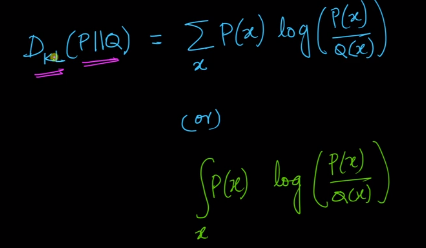 D_KL(P||Q) = ∑_x P(x) log(P(x)/Q(x))
(or)
∫_x P(x) log(P(x)/Q(x))